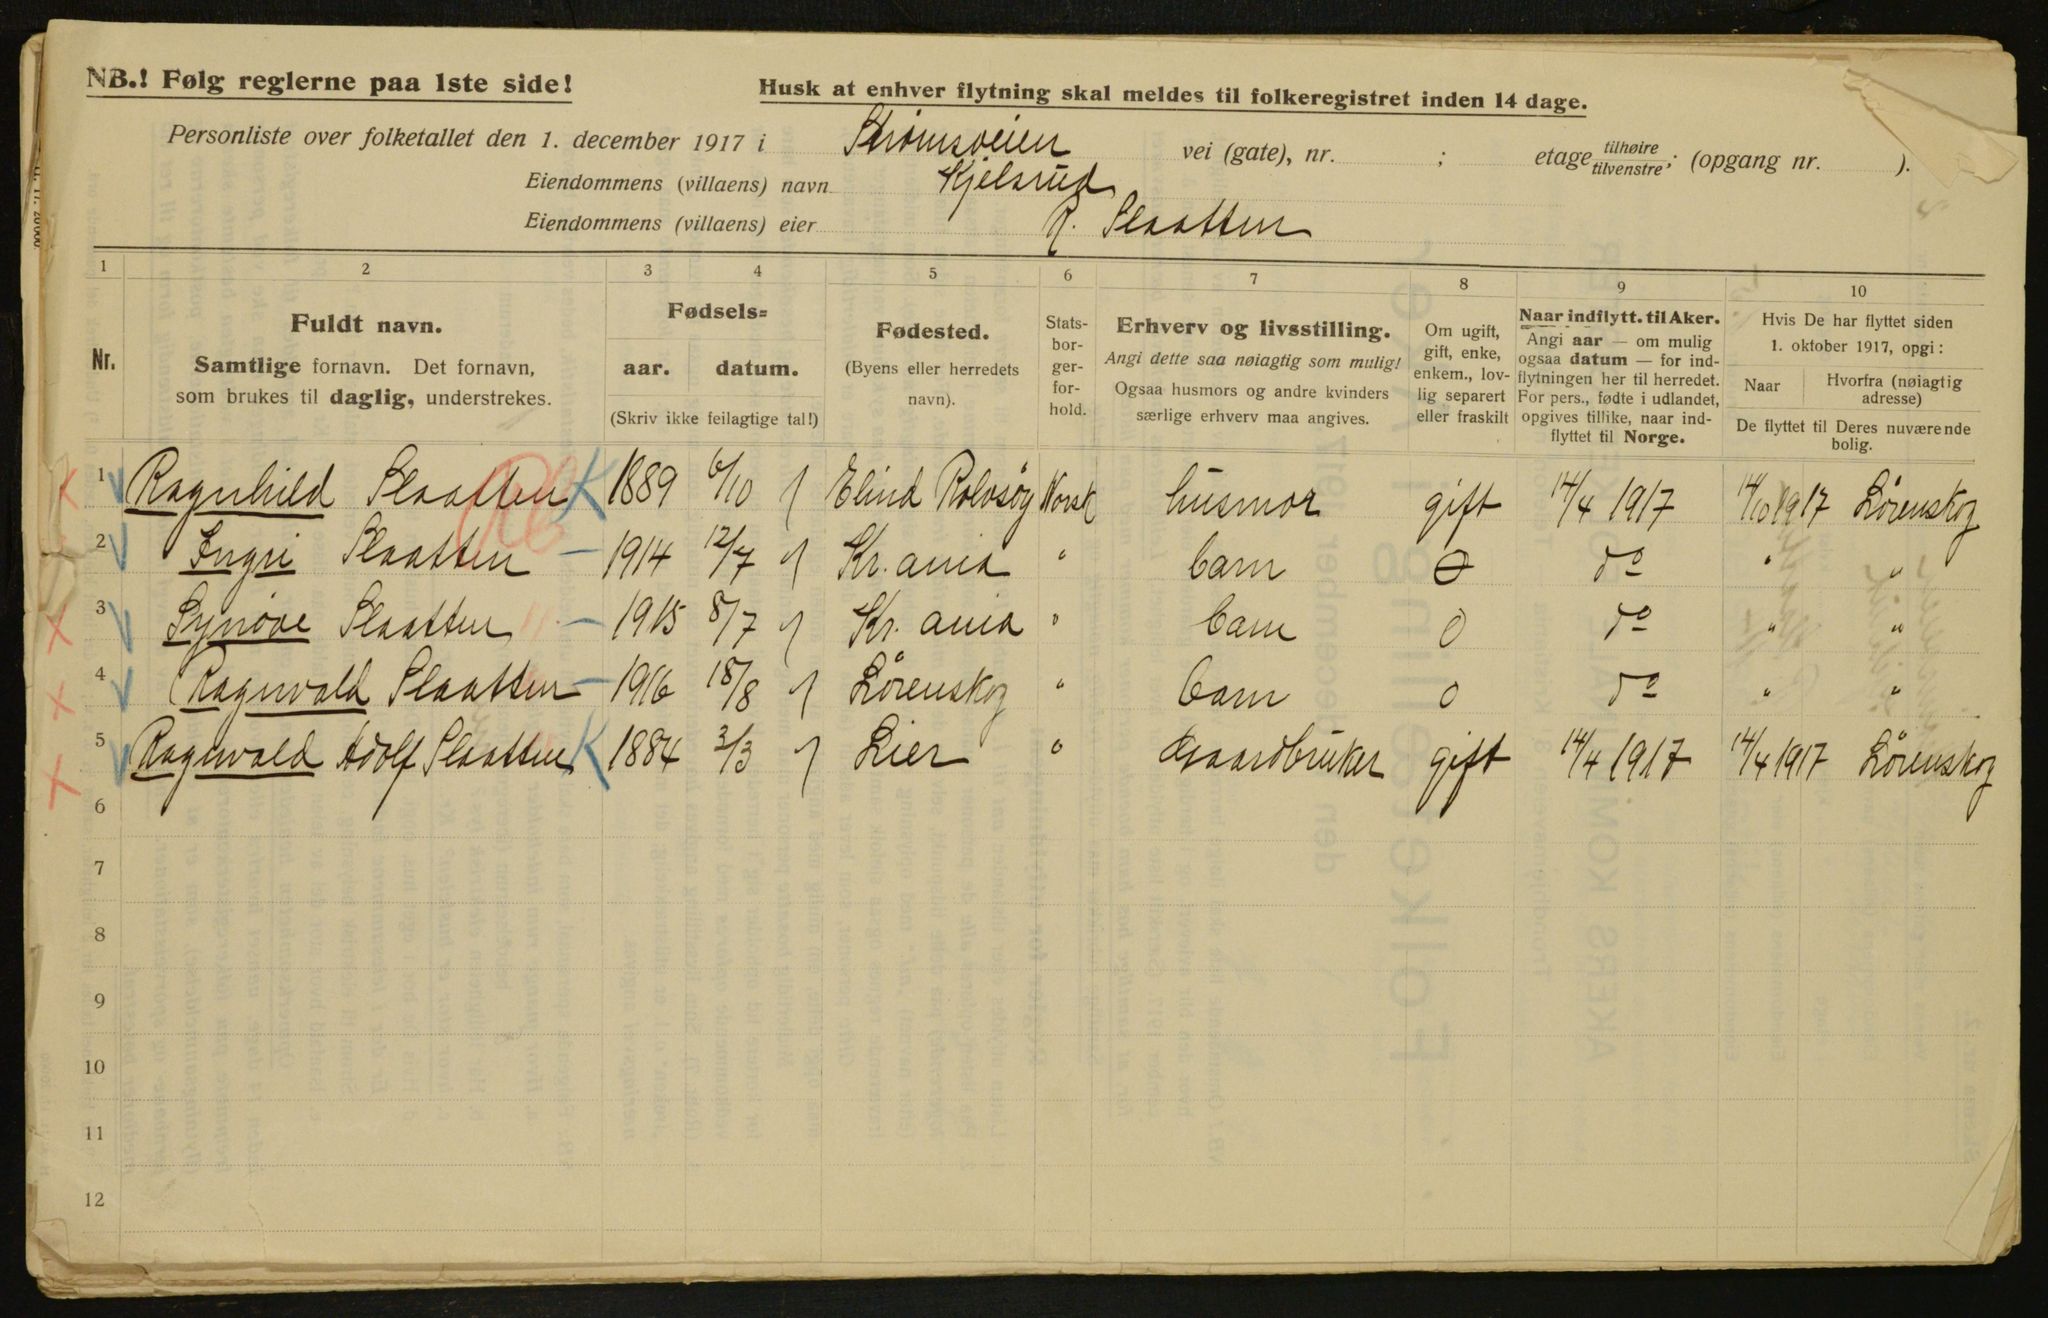 NB.! Følg reglerne paa 1ste side!
Husk at enhver flytning skal meldes til folkeregistret inden 14 dage.
Personliste over folketallet den 1. december 1917 i Strømsveien vei (gate), nr. ; etage tilhøire tilvenstre; (opgang nr. ).
Eiendommens (villaens) navn Kjelsrud
Eiendommens (villaens) eier R. Slaatten
1 2 3 4 5 6 7 8 9 10
Nr.
Fuldt navn.
Samtlige fornavn. Det fornavn,
som brukes til daglig, understrekes.
Fødsels=
aar. datum.
(Skriv ikke feilagtige tal!)
Fødested.
(Byens eller herredets
navn).
Stats-
bor-
ger-
for-
hold.
Erhverv og livsstilling.
Angi dette saa nøiagtig som mulig!
Ogsaa husmors og andre kvinders
særlige erhverv maa angives.
Om ugift,
gift, enke,
enkem., lov-
lig separert
eller fraskilt
Naar indflytt. til Aker.
Angi aar — om mulig
ogsaa datum — for ind-
flytningen her til herredet.
For pers., fødte i udlandet,
opgives tillike, naar ind-
flyttet til Norge.
Hvis De har flyttet siden
1. oktober 1917, opgi:
Naar
Hvorfra (nøiagtig
adresse)
De flyttet til Deres nuværende
bolig.
1 Ragnhild Slaatten K 1889 6/10 Elind Rolvsøy Norsk husmor gift 14/4 1917 14/10 1917 Lørenskog
2 Ingri Slaatten 1914 12/7 Kr.ania " barn 0 do " "
3 Synøve Slaatten 1915 8/7 Kr. ania " barn 0 do " "
4 Ragnvald Slaatten 1916 18/8 Lørenskog " barn 0 do " "
5 Ragnvald Adolf Slaatten K 1884 3/3 Lier " Gaardbruker gift 14/4 1917 14/4 1917 Lørenskog
6
7
8
9
10
11
12